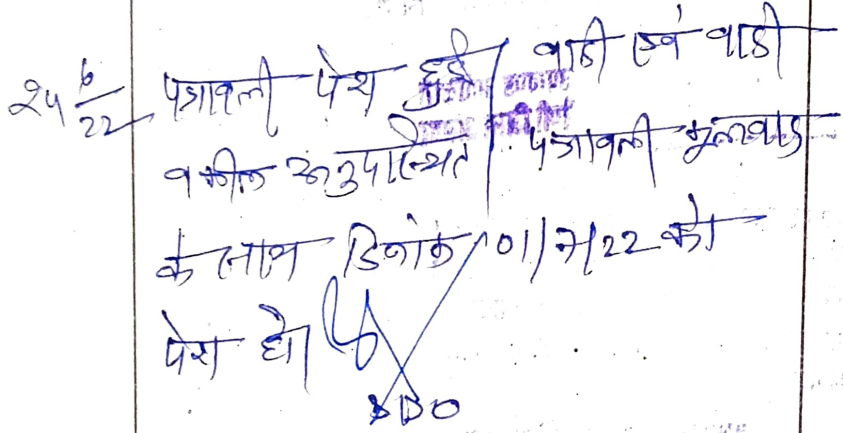 24 6/22 पत्रावली पेश हुई। वादी एवं वादी
वकील अनुपस्थित। पत्रावली मूलवाद
के साथ दिनांक 01/7/22 को
पेश हो।
SDO